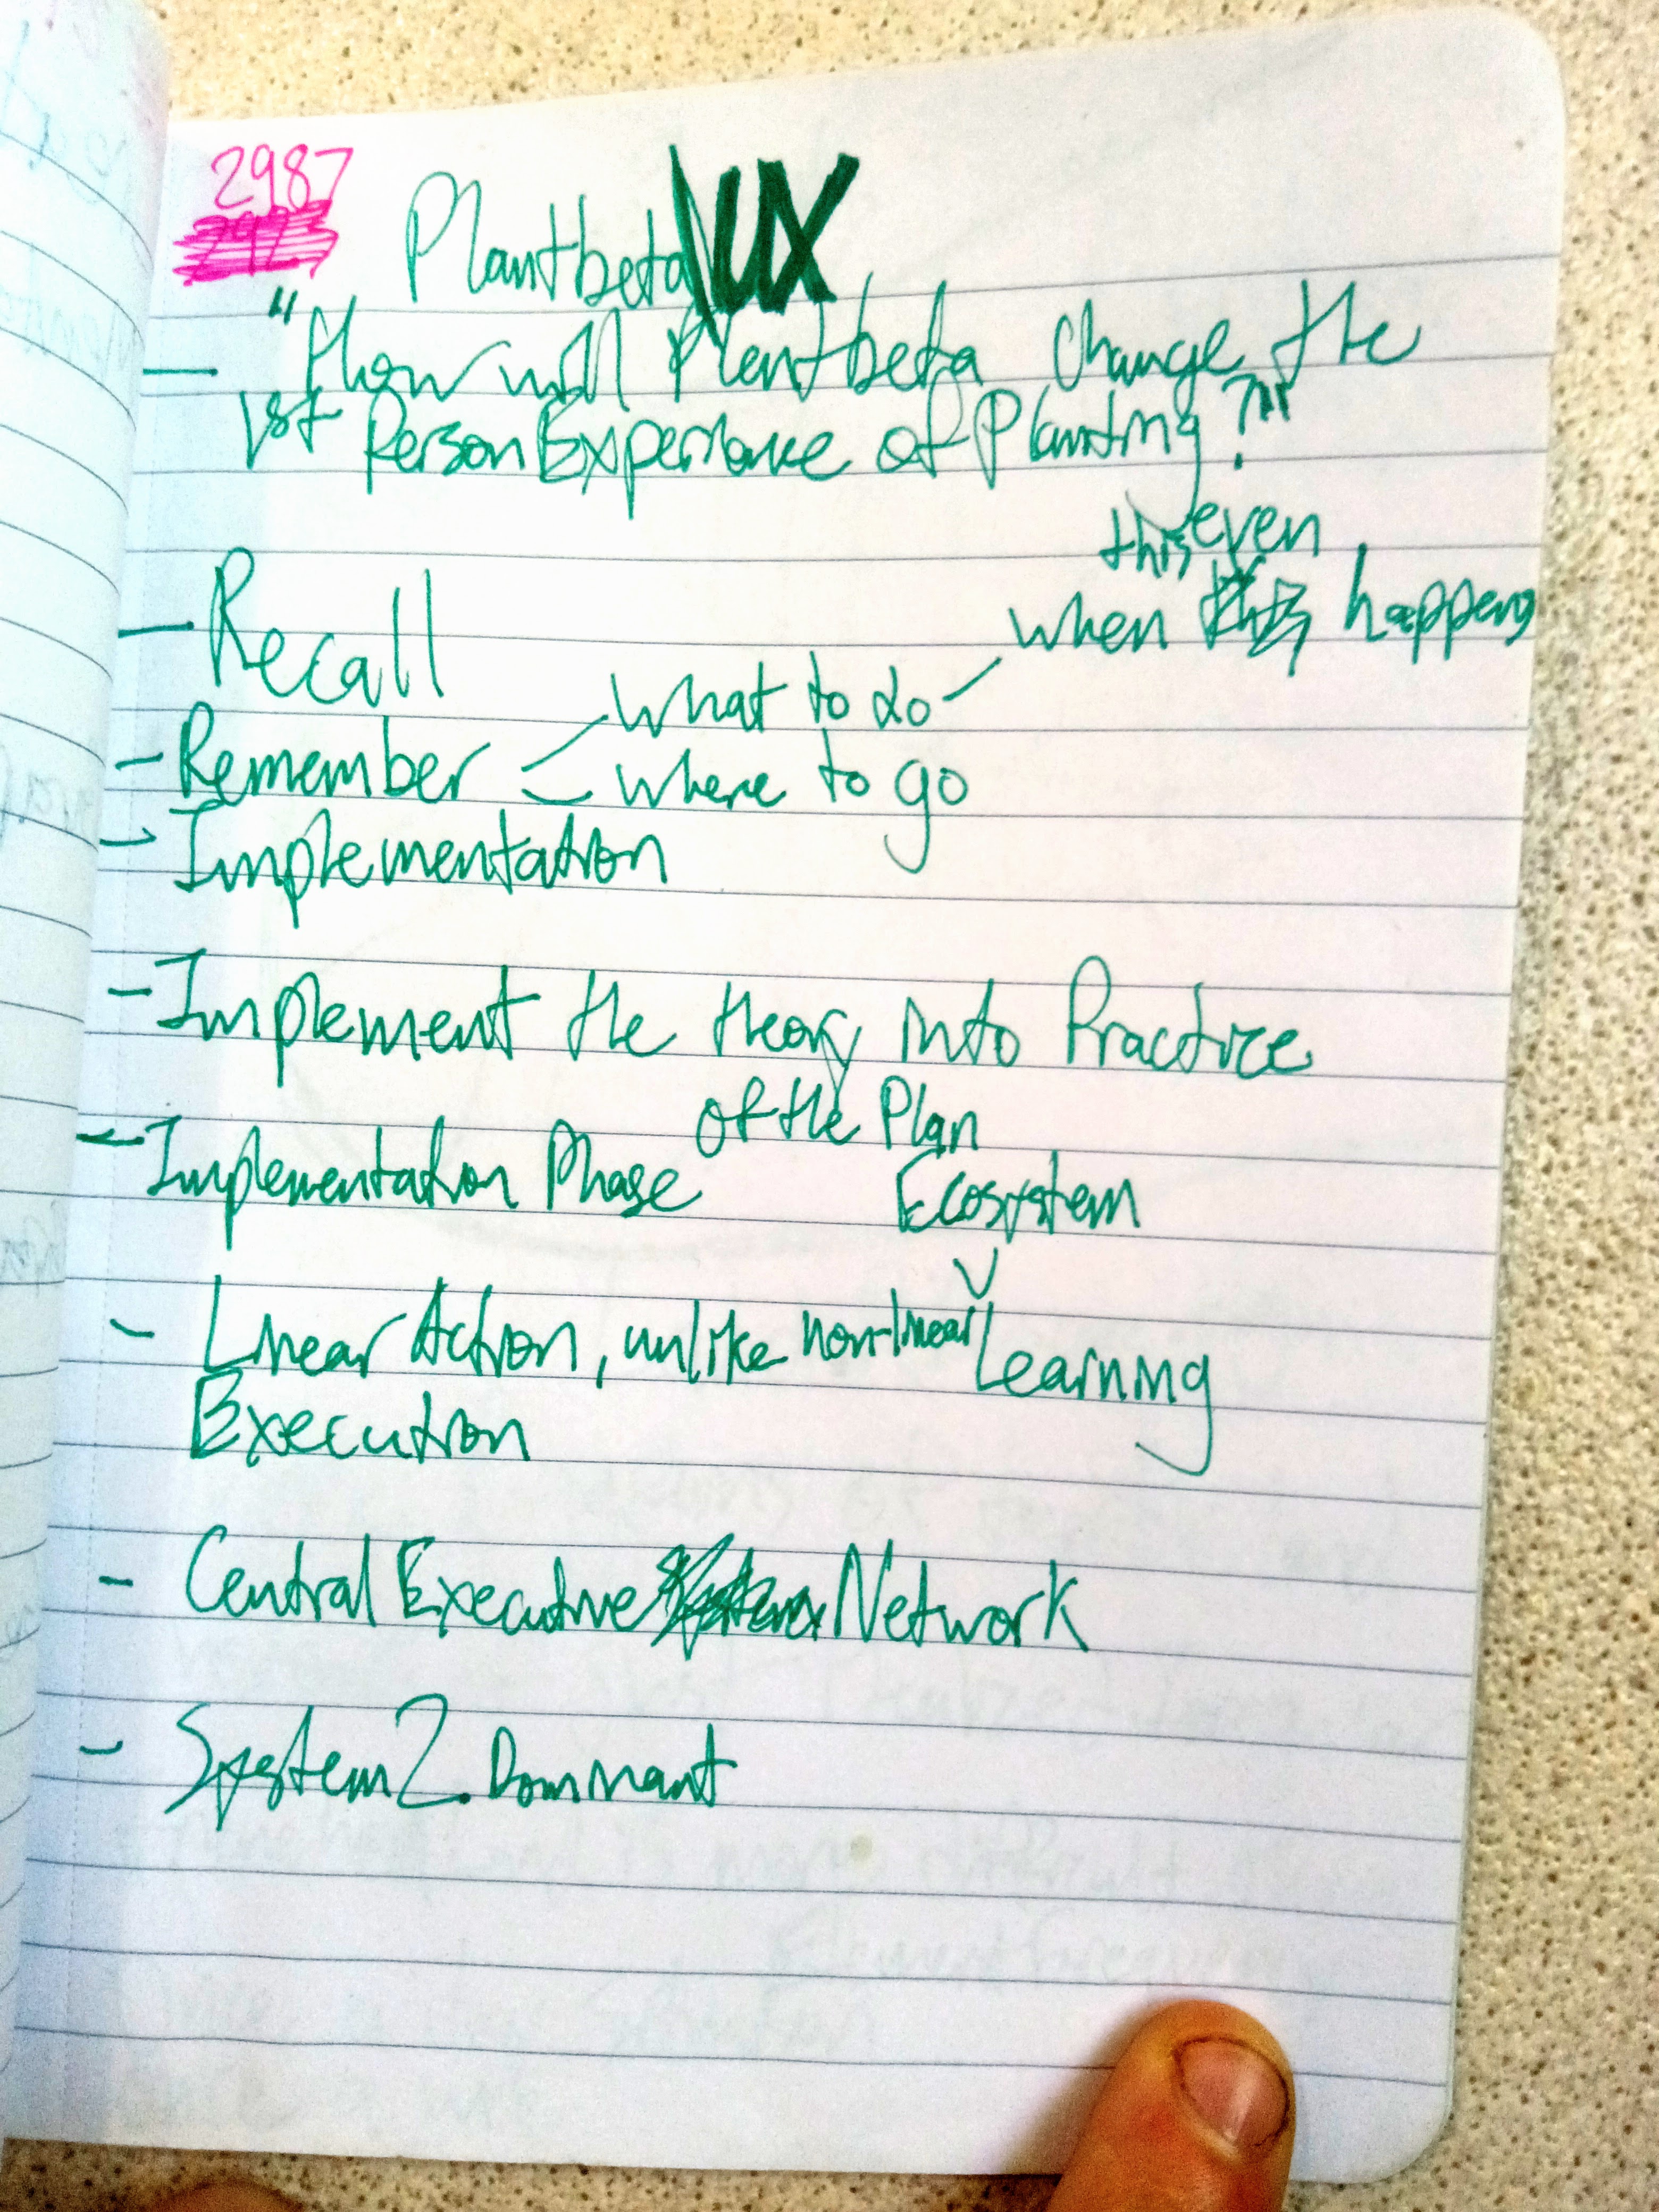 2987
Plantbeta\UX
— "How will Plantbeta Change the
1st Person Experience of Planting?"
this even
— Recall
when happens
what to do
- Remember
where to go
- Implementation
- Implement the theory into Practice
of the Plan
- Implementation Phase
Ecosystem
- Linear Action, unlike non-linear Learning
Execution
- Central Executive Network
- System 2. Dominant